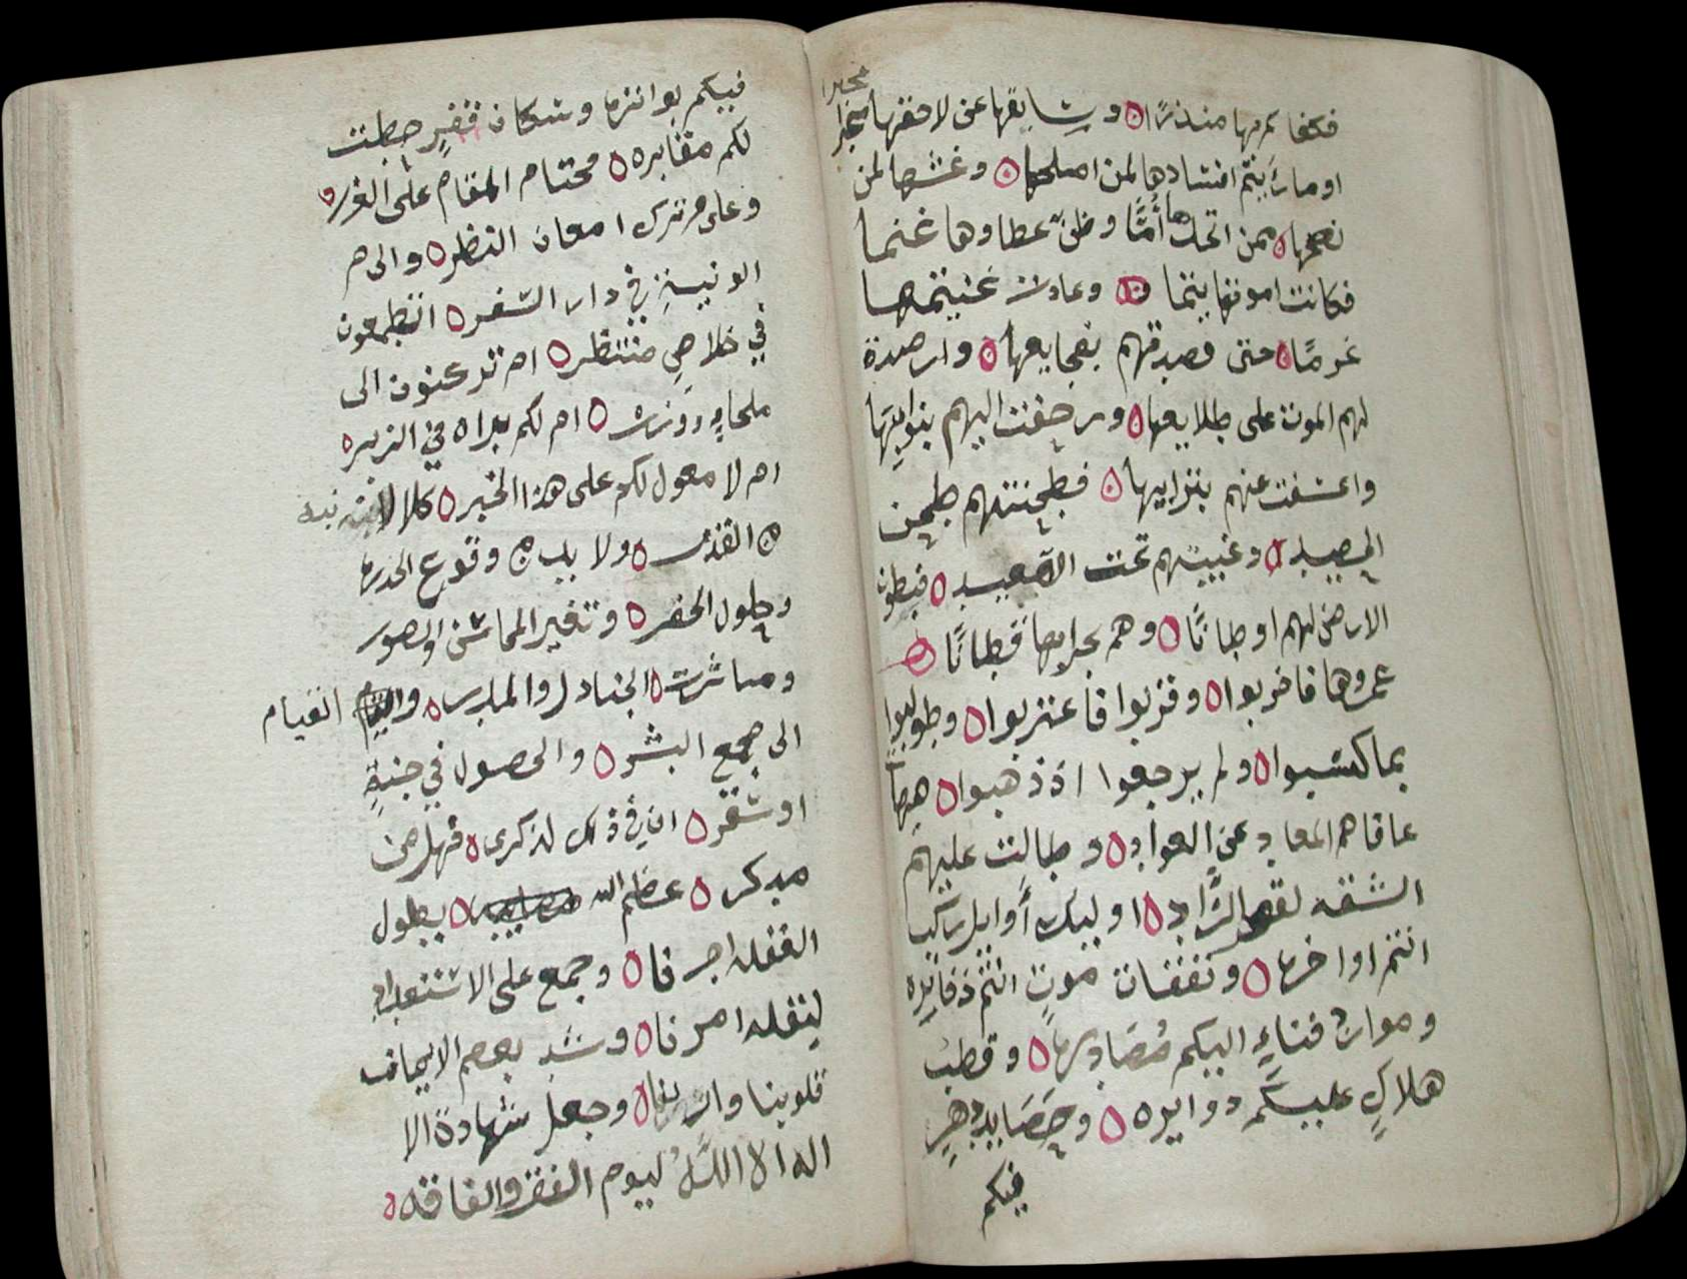 فكفا بمرها منذرًا ○ وبسابقها عن لاحقها مخبرا
مخبرا
او ما رايتم افسادها لمن اصلحها ○ وغشها لمن
نصحها ○ ممن اتخذها أُمًّا وظنّ عطاوها غنما
فكانت امومتها يتما ○ وعادت غنيمتها
غرمًا ○ حتى فصدقتهم بفجايعها ○ وارصدة
لهم الموت على طلايعها ○ وزحفت اليهم بنوايبها
واعشفت عنهم بترابيها ○ فطحنتهم طحن
الحصيد ○ وغيبتهم تحت الصعيد ○ فبطون
الارض لهم اوطانًا ○ وهم بخرابها قطانًا ○
عمروها فاخربوا ○ وقربوا فاغتربوا ○ وطولبوا
بما كسبوا ○ ولم يرجعوا اذ ذهبوا ○
عاقاهم المعاد عن العواد ○ وطالت عليهم
الشقه لقصر الزاد ○ اوليك أوايل ركب
انتم اواخرها ○ ونفقات موت انتم ذخايره
وموارد فناءٍ اليكم مصادرها ○ وقطب
هلاكٍ عليكم دوايره ○ وحصايد دهرٍ
فيكم
فيكم بوادره وسكان قفرٍ حطت
لكم مقابره ○ فحتام المقام على الغرر ○
وعلى م ترك امعان النظر ○ والى م
الونيةِ في دار السفر ○ اتطمعون
في خلاصٍ منتظر ○ ام تركنون الى
ملجاءٍ ووزر ○ ام لكم براه في الزبر ○
ام لا معول لكم على هذا الخبر ○ كلا
القدر ○ ولا بد من وقوع الحذر
وحلول الحفر ○ وتغير المحاسن والصور
ومباشرت الجنادل والمدر ○ القيام
الى مجمع البشر ○ والحصول في جنةٍ
او سقر ○ ان في ذلك لذكرى ○ فهل من
مدكر ○ عظم الله بطول
الغفله اجرنا ○ وجمع على الاستعداد
لنقله امرنا ○ وشد بعصم الايمان
قلوبنا وازرنا ○ وجعل شهادة الا
اله الا اللهُ ليوم الفقر والفاقه ○